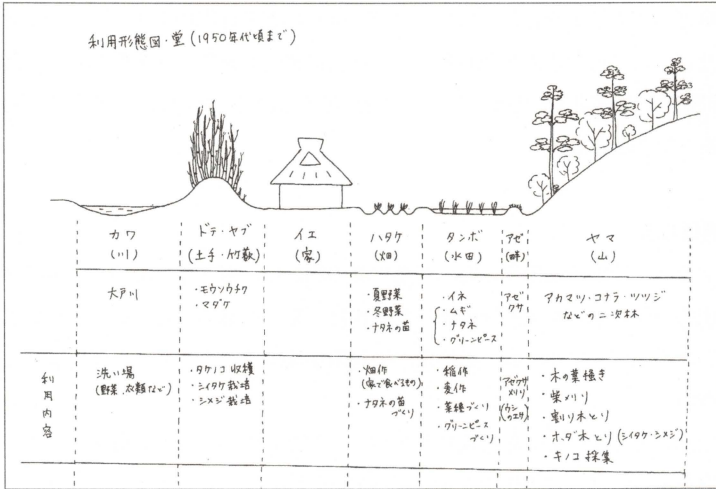 利用形態図・堂(1950年代頃まで)
カワ
(川)
ドテ・ヤブ
(土手・竹藪)
イエ
(家)
ハタケ
(畑)
タンボ
(水田)
アゼ
(畔)
ヤマ
(山)
大戸川
・モウソウチク
・マダケ
・夏野菜
・冬野菜
・ナタネの苗
・イネ
・ムギ
・ナタネ
・グリーンピース
アゼ
クサ
アカマツ・コナラ・ツツジ
などの二次林
利用内容
洗い場
(野菜、衣類など)
・タケノコ収穫
・シイタケ栽培
・シメジ栽培
・畑作
(家で食べるもの)
・ナタネの苗
づくり
・稲作
・麦作
・菜種づくり
・グリーンピース
づくり
アゼクサ
メリリ
(ウシ
のエサ)
・木の葉掻き
・柴メリリ
・割り木とり
・ホダ木とり(シイタケ・シメジ)
・キノコ採集